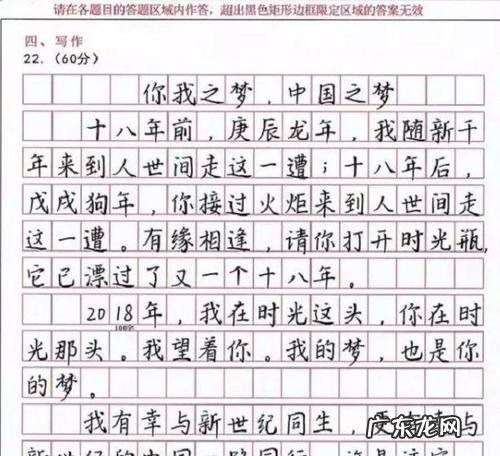 请在各题目的答题区域内作答，超出黑色矩形边框限定区域的答案无效
四、写作
22.（60分）
你我之梦，中国之梦
十八年前，庚辰龙年，我随新千
年来到人世间走这一遭；十八年后，
戊戌狗年，你接过火炬来到人世间走
这一遭。有缘相逢，请你打开时光瓶，
它已漂过了又一个十八年。
2018年，我在时光这头，你在时
100字
光那头。我望着你。我的梦，也是你
的梦。
我有幸与新世纪同生，
广东龙网